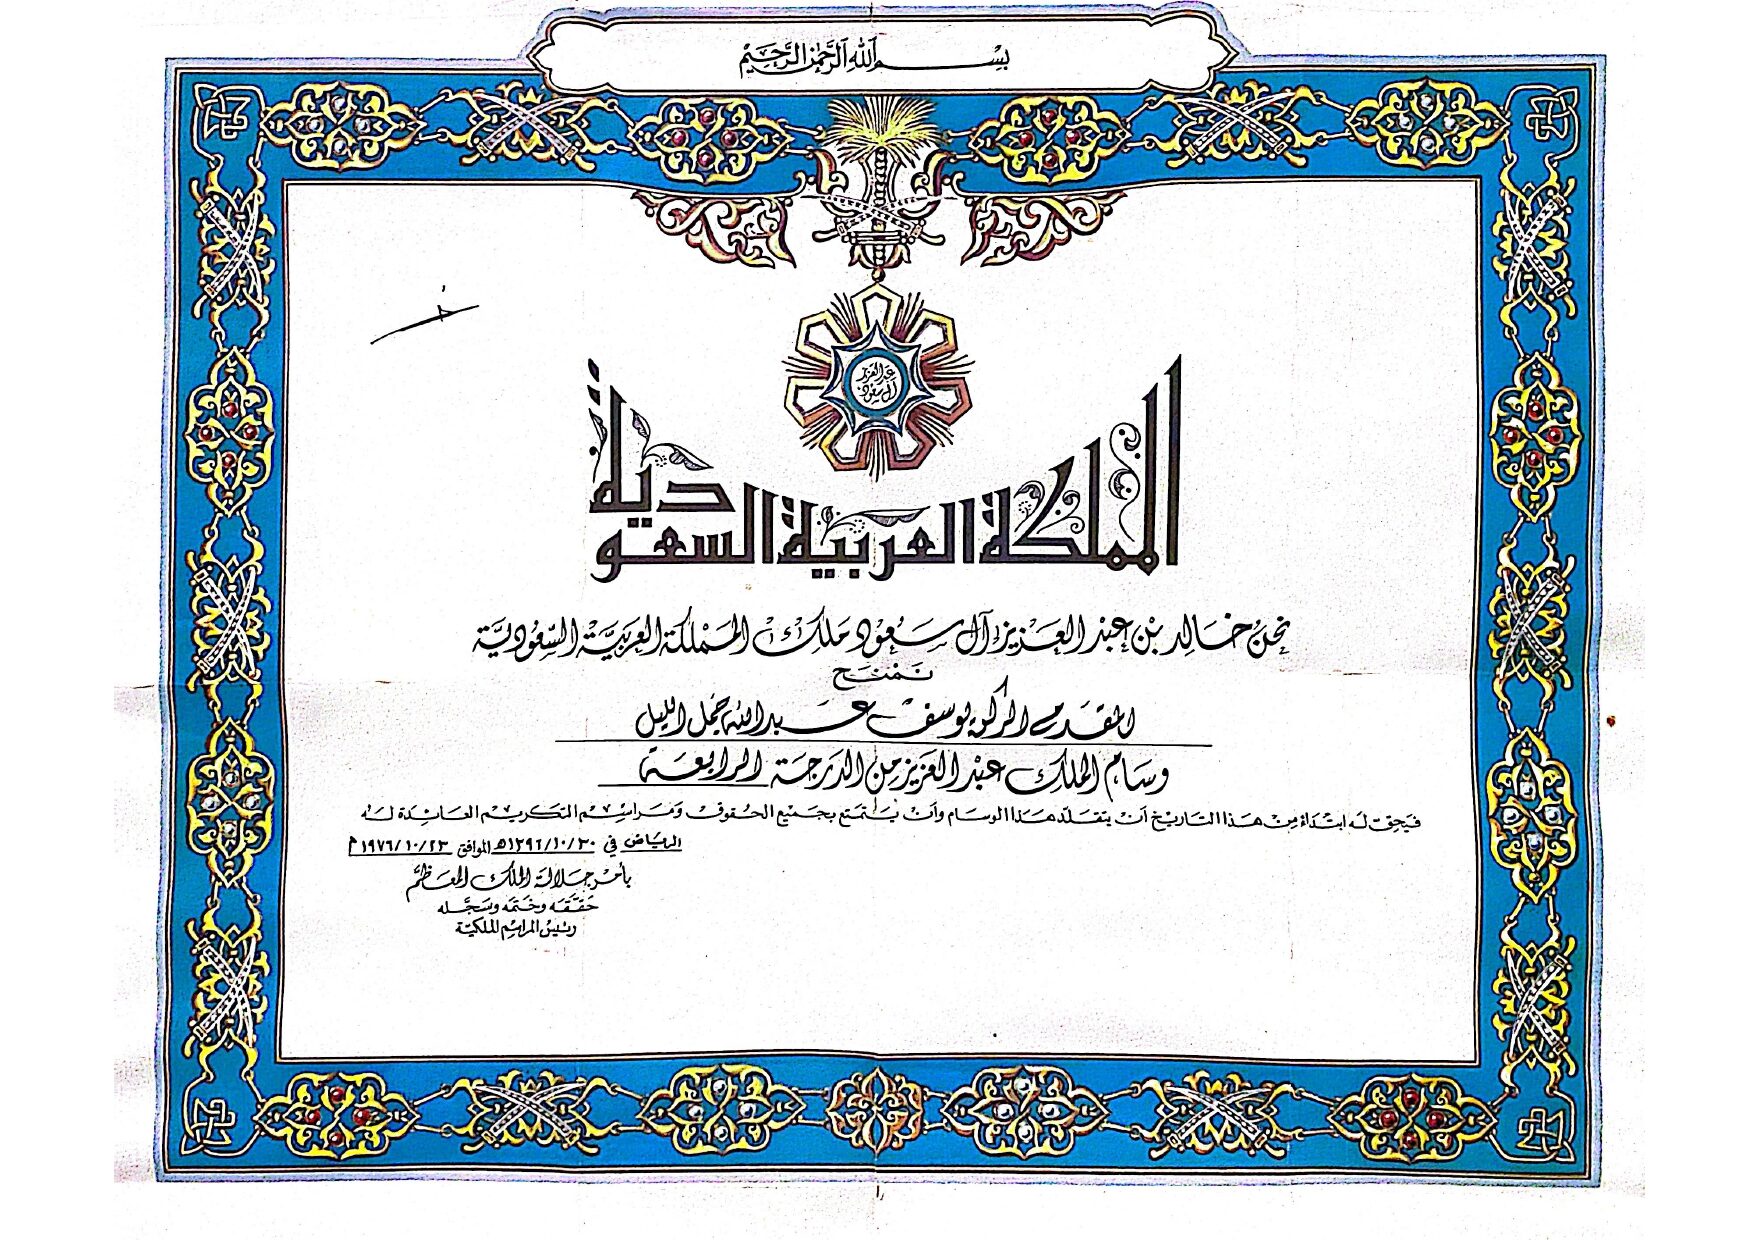 بسم الله الرحمن الرحيم
عبد العزيز
آل سعود
المملكة العربية السعودية
نحن خالد بن عبد العزيز آل سعود ملك المملكة العربية السعودية
نمنح
المقدم الركن يوسف عبد الله جمل الليل
وسام الملك عبد العزيز من الدرجة الرابعة
فيحق له ابتداء من هذا التاريخ أن يتقلد هذا الوسام وأن يتمتع بجميع الحقوق ومراسم التكريم العائدة له
الرياض في ١٣٩٦/١٠/٣٠هـ الموافق ١٩٧٦/١٠/٢٣م
بأمر جلالة الملك المعظم
حققه وختمه وسجله
رئيس المراسم الملكية